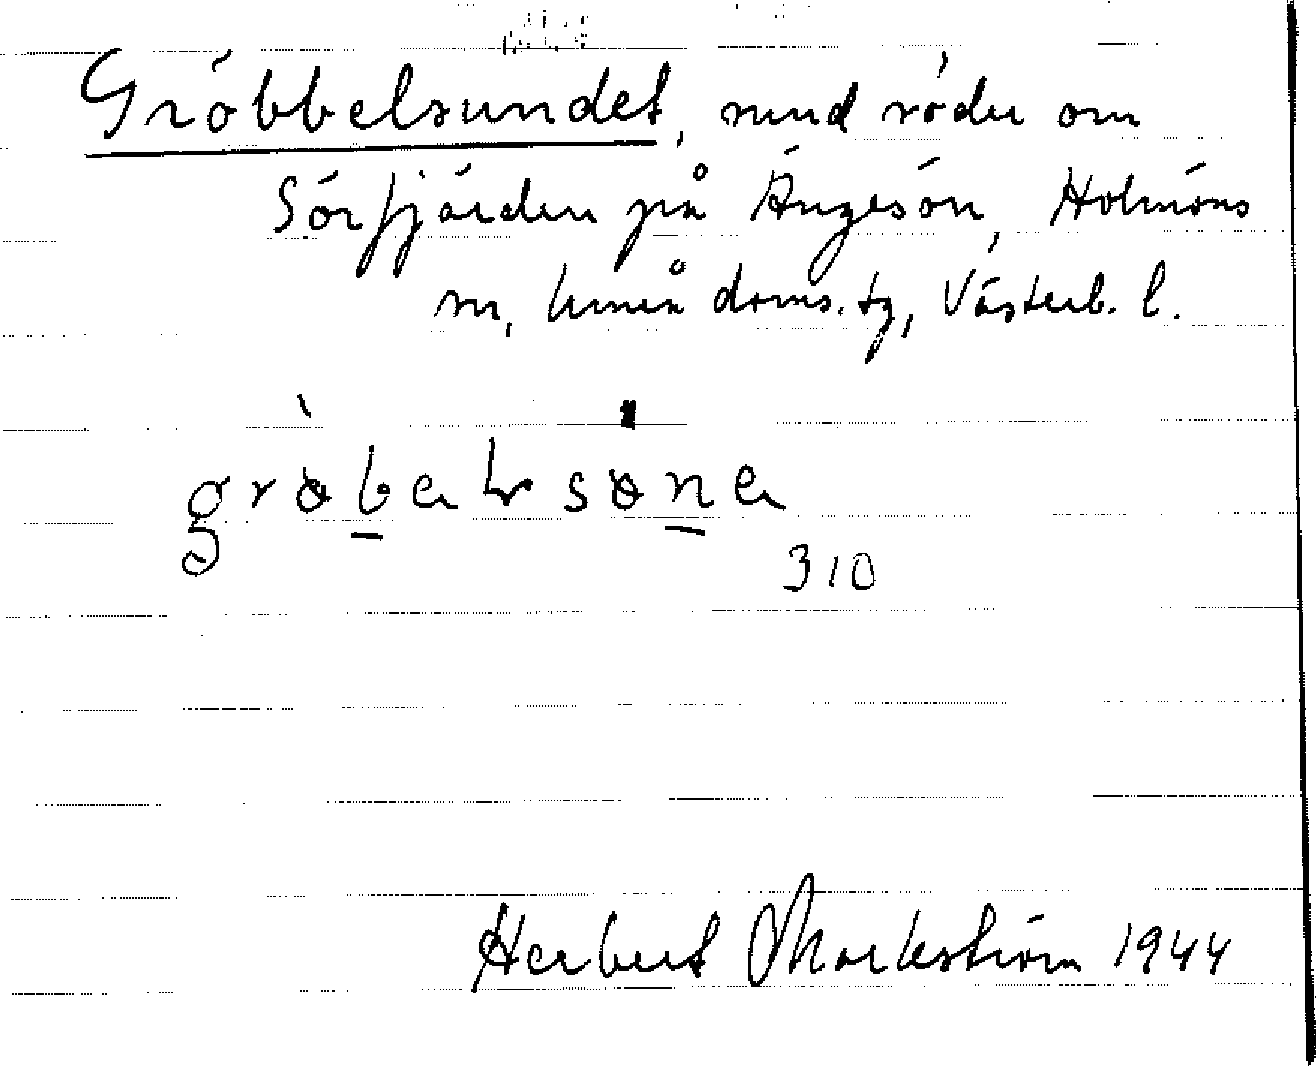 Gröbbelsundet, sund söder om
Sörfjärden på Ängesön, Holmöns
sn, Umeå doms. tg, Västerb. l.
310
Herbert Markström 1944